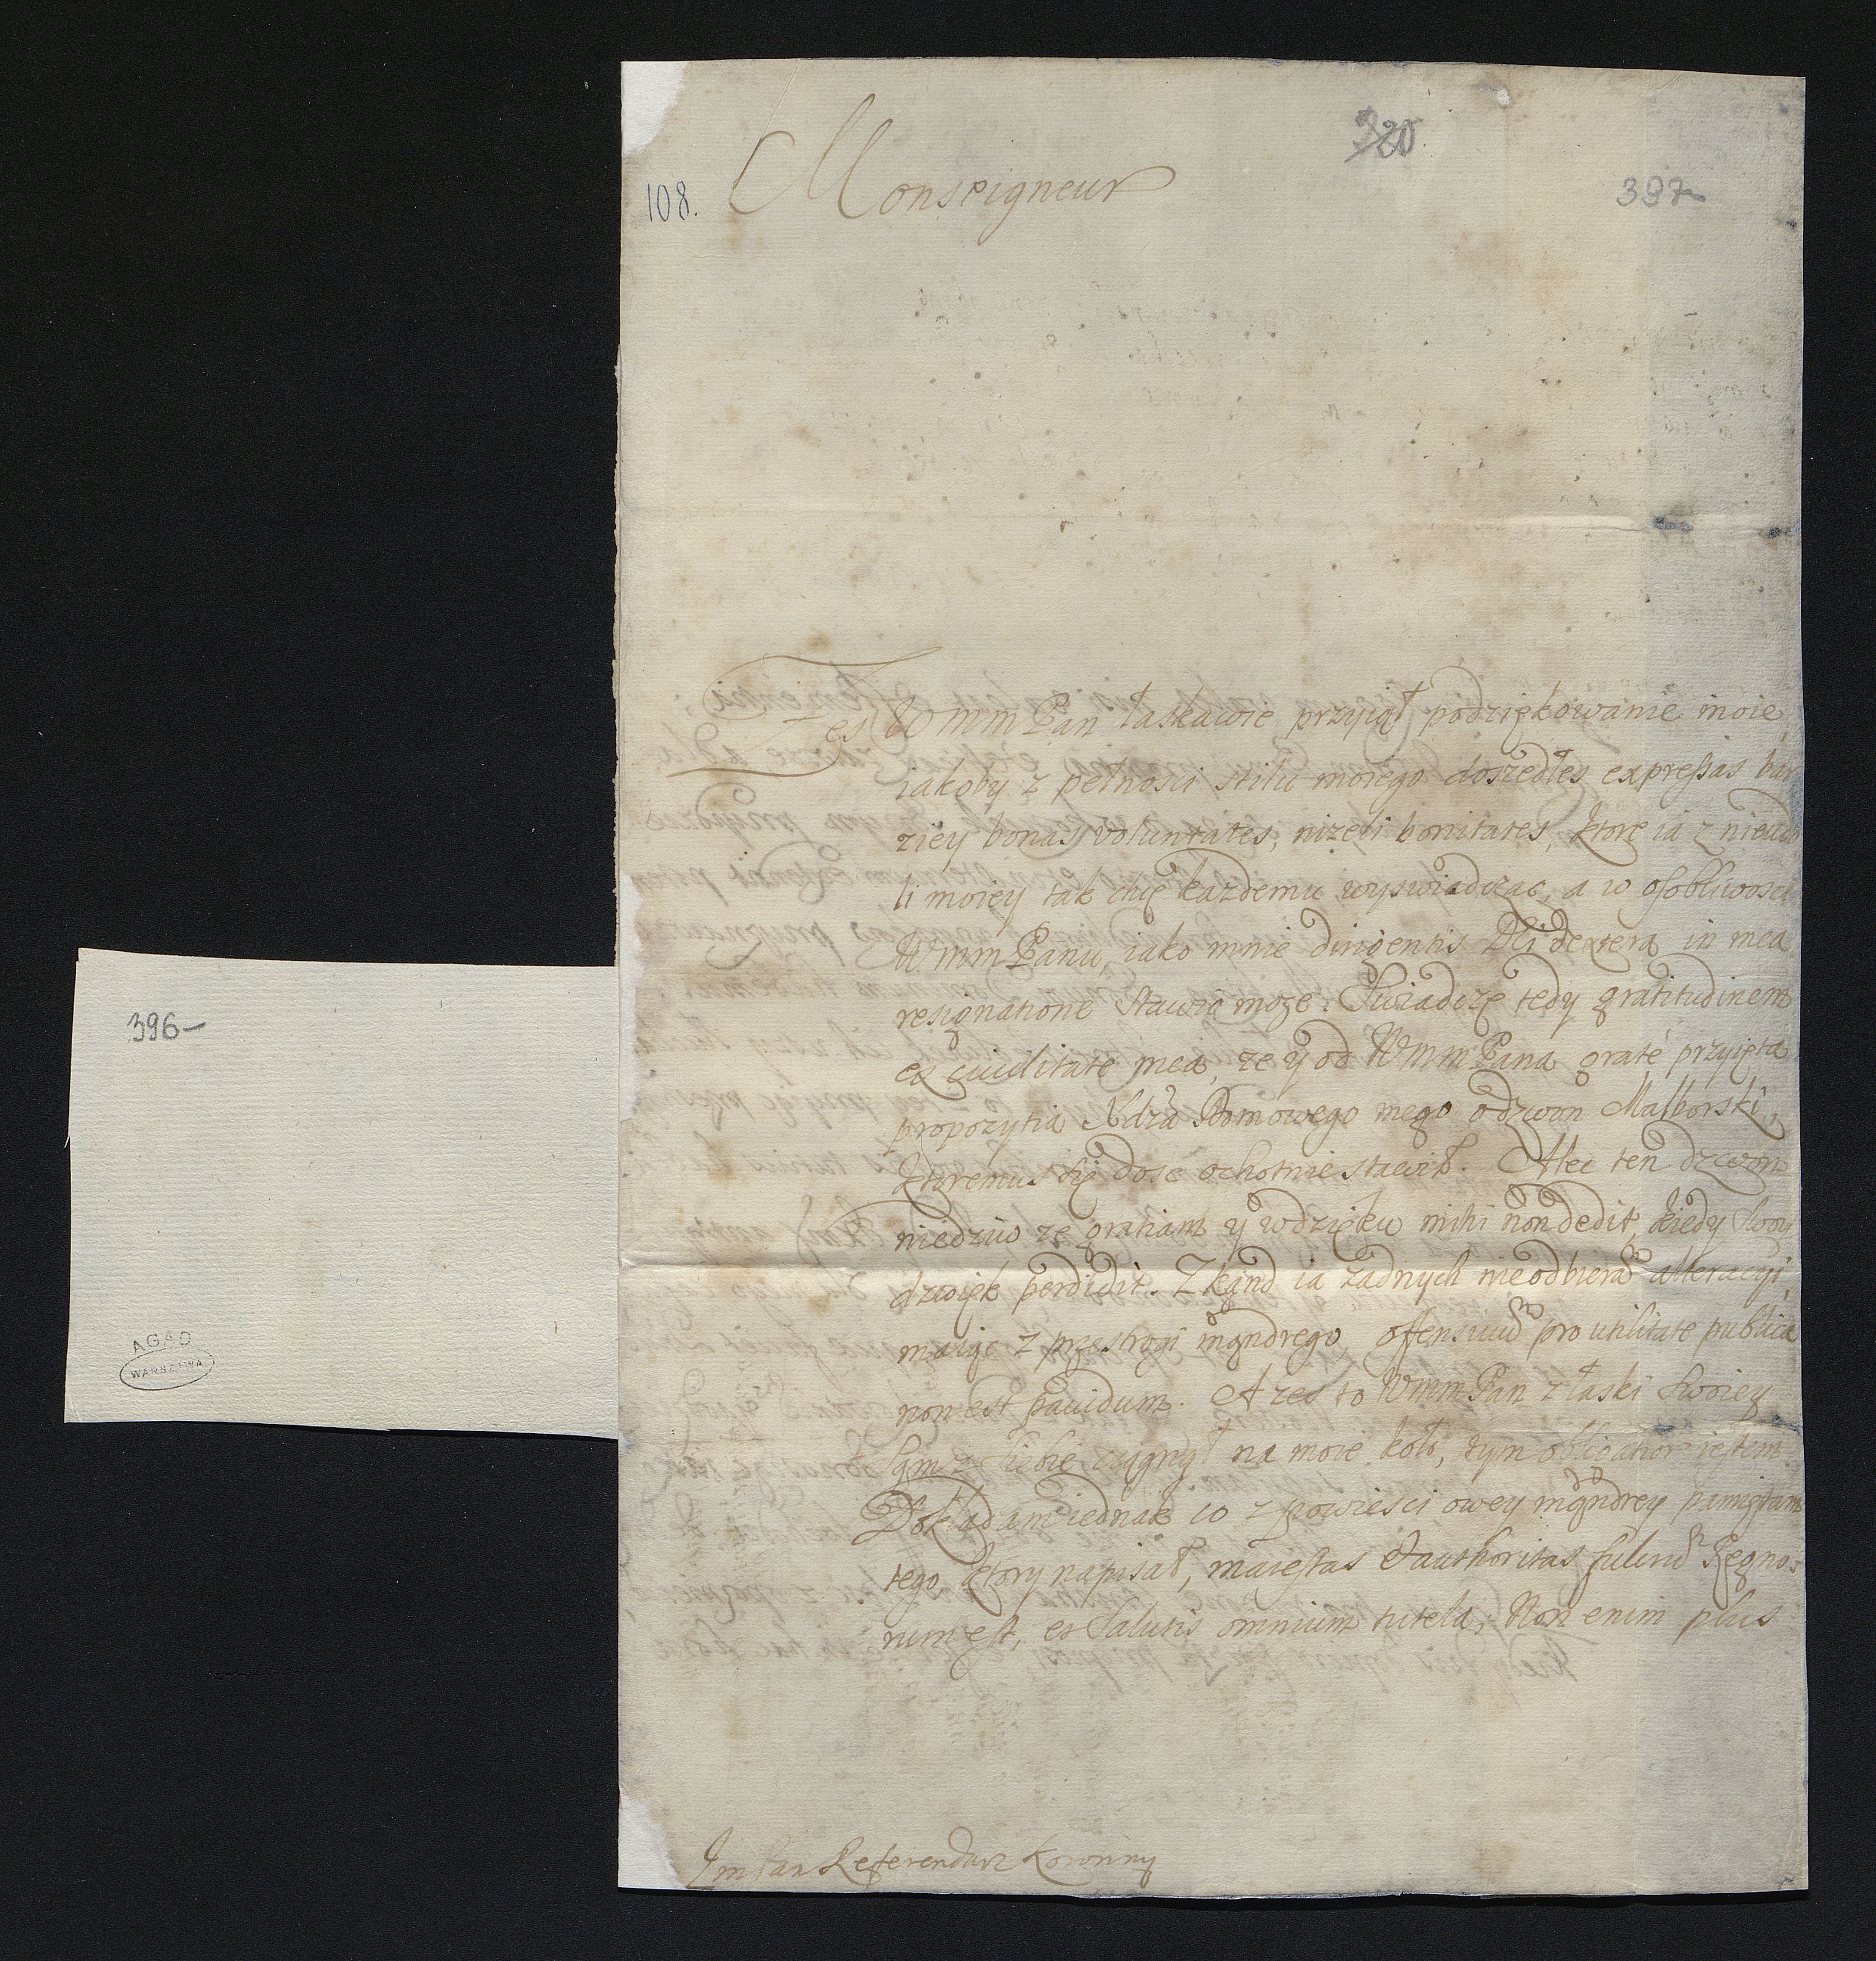 320
397
108.
Monseigneur
Zes WMM Pan łaskawie przyiął podziękowanie moie,
iakoby z pełnosci stilu moiego doszedłes expressas bar
ziey bonas voluntates, nizeli bonitates, ktore ia z nieudo
li moiey tak chcę kazdemu wyswiadczac, a w osobliwosci
WMM Panu, iako mnie dirigentis DEi dextera in mea
resignatione stawic moze. Swiadczę tedy gratitudinem
ex civilitate mea, ze y od WMM Pana graté przyięta
propozytia Xdza Domowego mego o dzwon Malborski,
ktoremus się dosc ochotnie stawił. Alec ten dzwon
niedziw ze gratiam y wdzięku mihi non dedit, kiedy swoy
dzwięk perdidit. Zkąnd ia zadnych nie odbieram alteracyi,
maiąc z przestrogi mąndrego, offensivum pro utilitate publica
non est pavidum. A zes to WMM Pan z łaski swoiey
sąm z siebie ciągnył na moie koło, tym obligatior iestem
Dokładam iednak co z powiesci owey mąndrey pamiętam
tego, ktory napisał, maiestas & authoritas fulcrum Regno=
rum est, et salutis omnium tutela; Non enim plus
Jm Pan Referendarz Koronny
396
AGAD
WARSZAWA